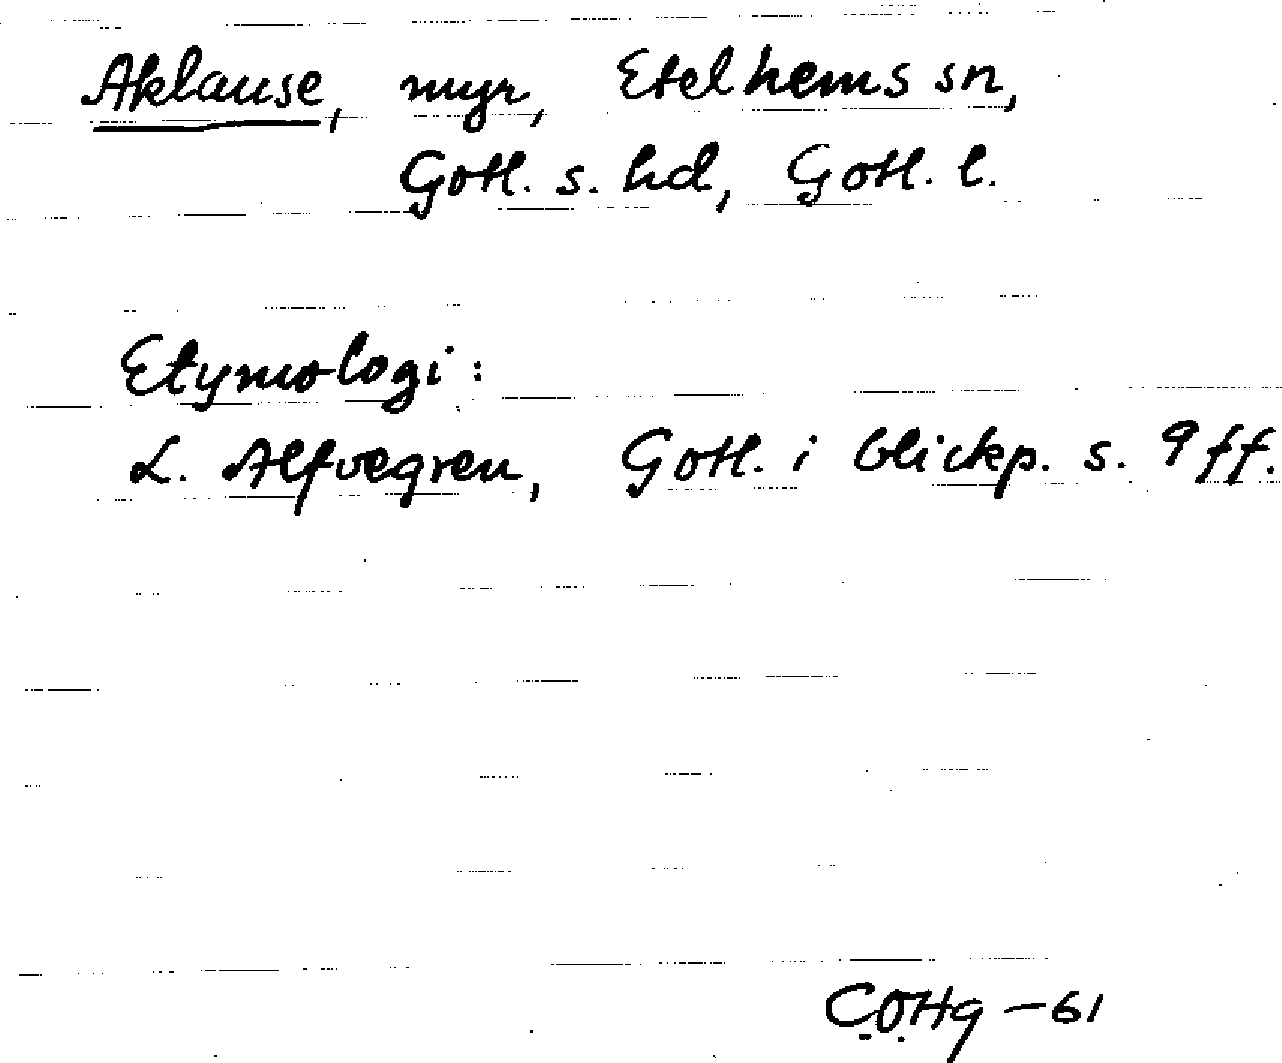 Aklause, myr, Etelhems sn,
Gotl. s. hd, Gotl. l.
Etymologi:
L. Alfvegren, Gotl. i blickp. s. 9 ff.
C.O.Hg -61